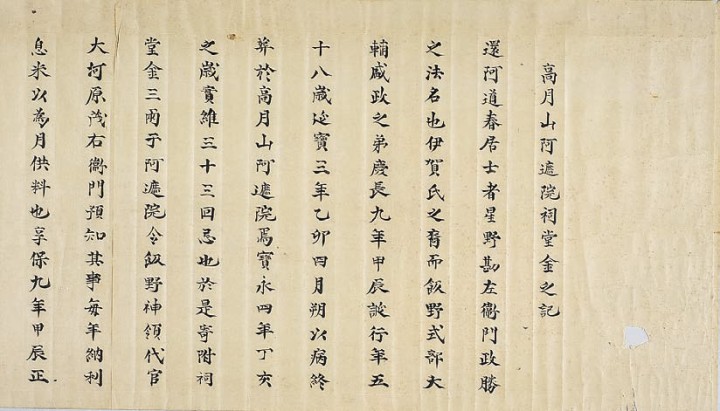 高月山阿遮院祠堂金之記
還阿道春居士者星野勘左衞門政勝
之法名也伊賀氏之育而飯野式部大
輔政之弟慶長九年甲辰行年五
十八歳延寶三年乙卯四月朔以病終
葬於高月山阿遮院焉寶永四年丁亥
之歳實維三十三回忌也於是寄附祠
堂金三兩于阿遮院令飯野神領代官
大河原茂右衞門預知其事每年納利
息米以為月供料也享保九年甲辰正